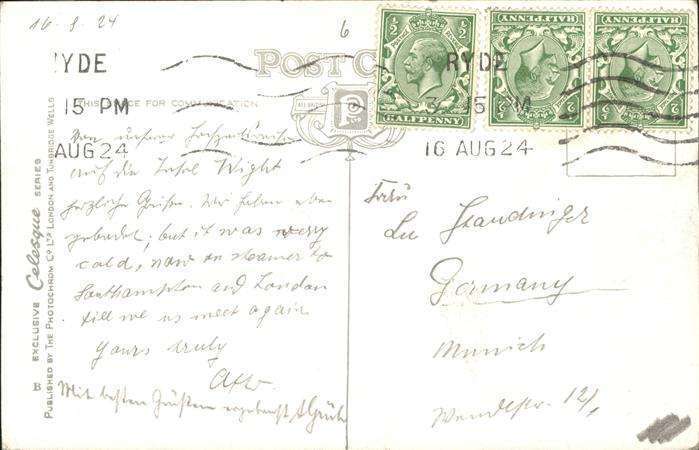 16.8.24
6
RYDE
15 PM
AUG 24
POST C
THIS SPACE FOR COMMUNICATION
HALFPENNY
HALFPENNY
HALFPENNY
RYDE
15 PM
16 AUG 24
Von unserer
auf der Insel Wight
herzliche Grüße. Wir haben eben
gebadet, but it was very
cold, now on steamer to
Southampton and London
till we us meet again
yours truly
Otto
Mit besten Grüssen
Frau
Lu Staudinger
Germany
Munich
Wendlstr. 12/1
B EXCLUSIVE Celesque SERIES
PUBLISHED BY THE PHOTOCHROM CO LTD LONDON AND TUNBRIDGE WELLS